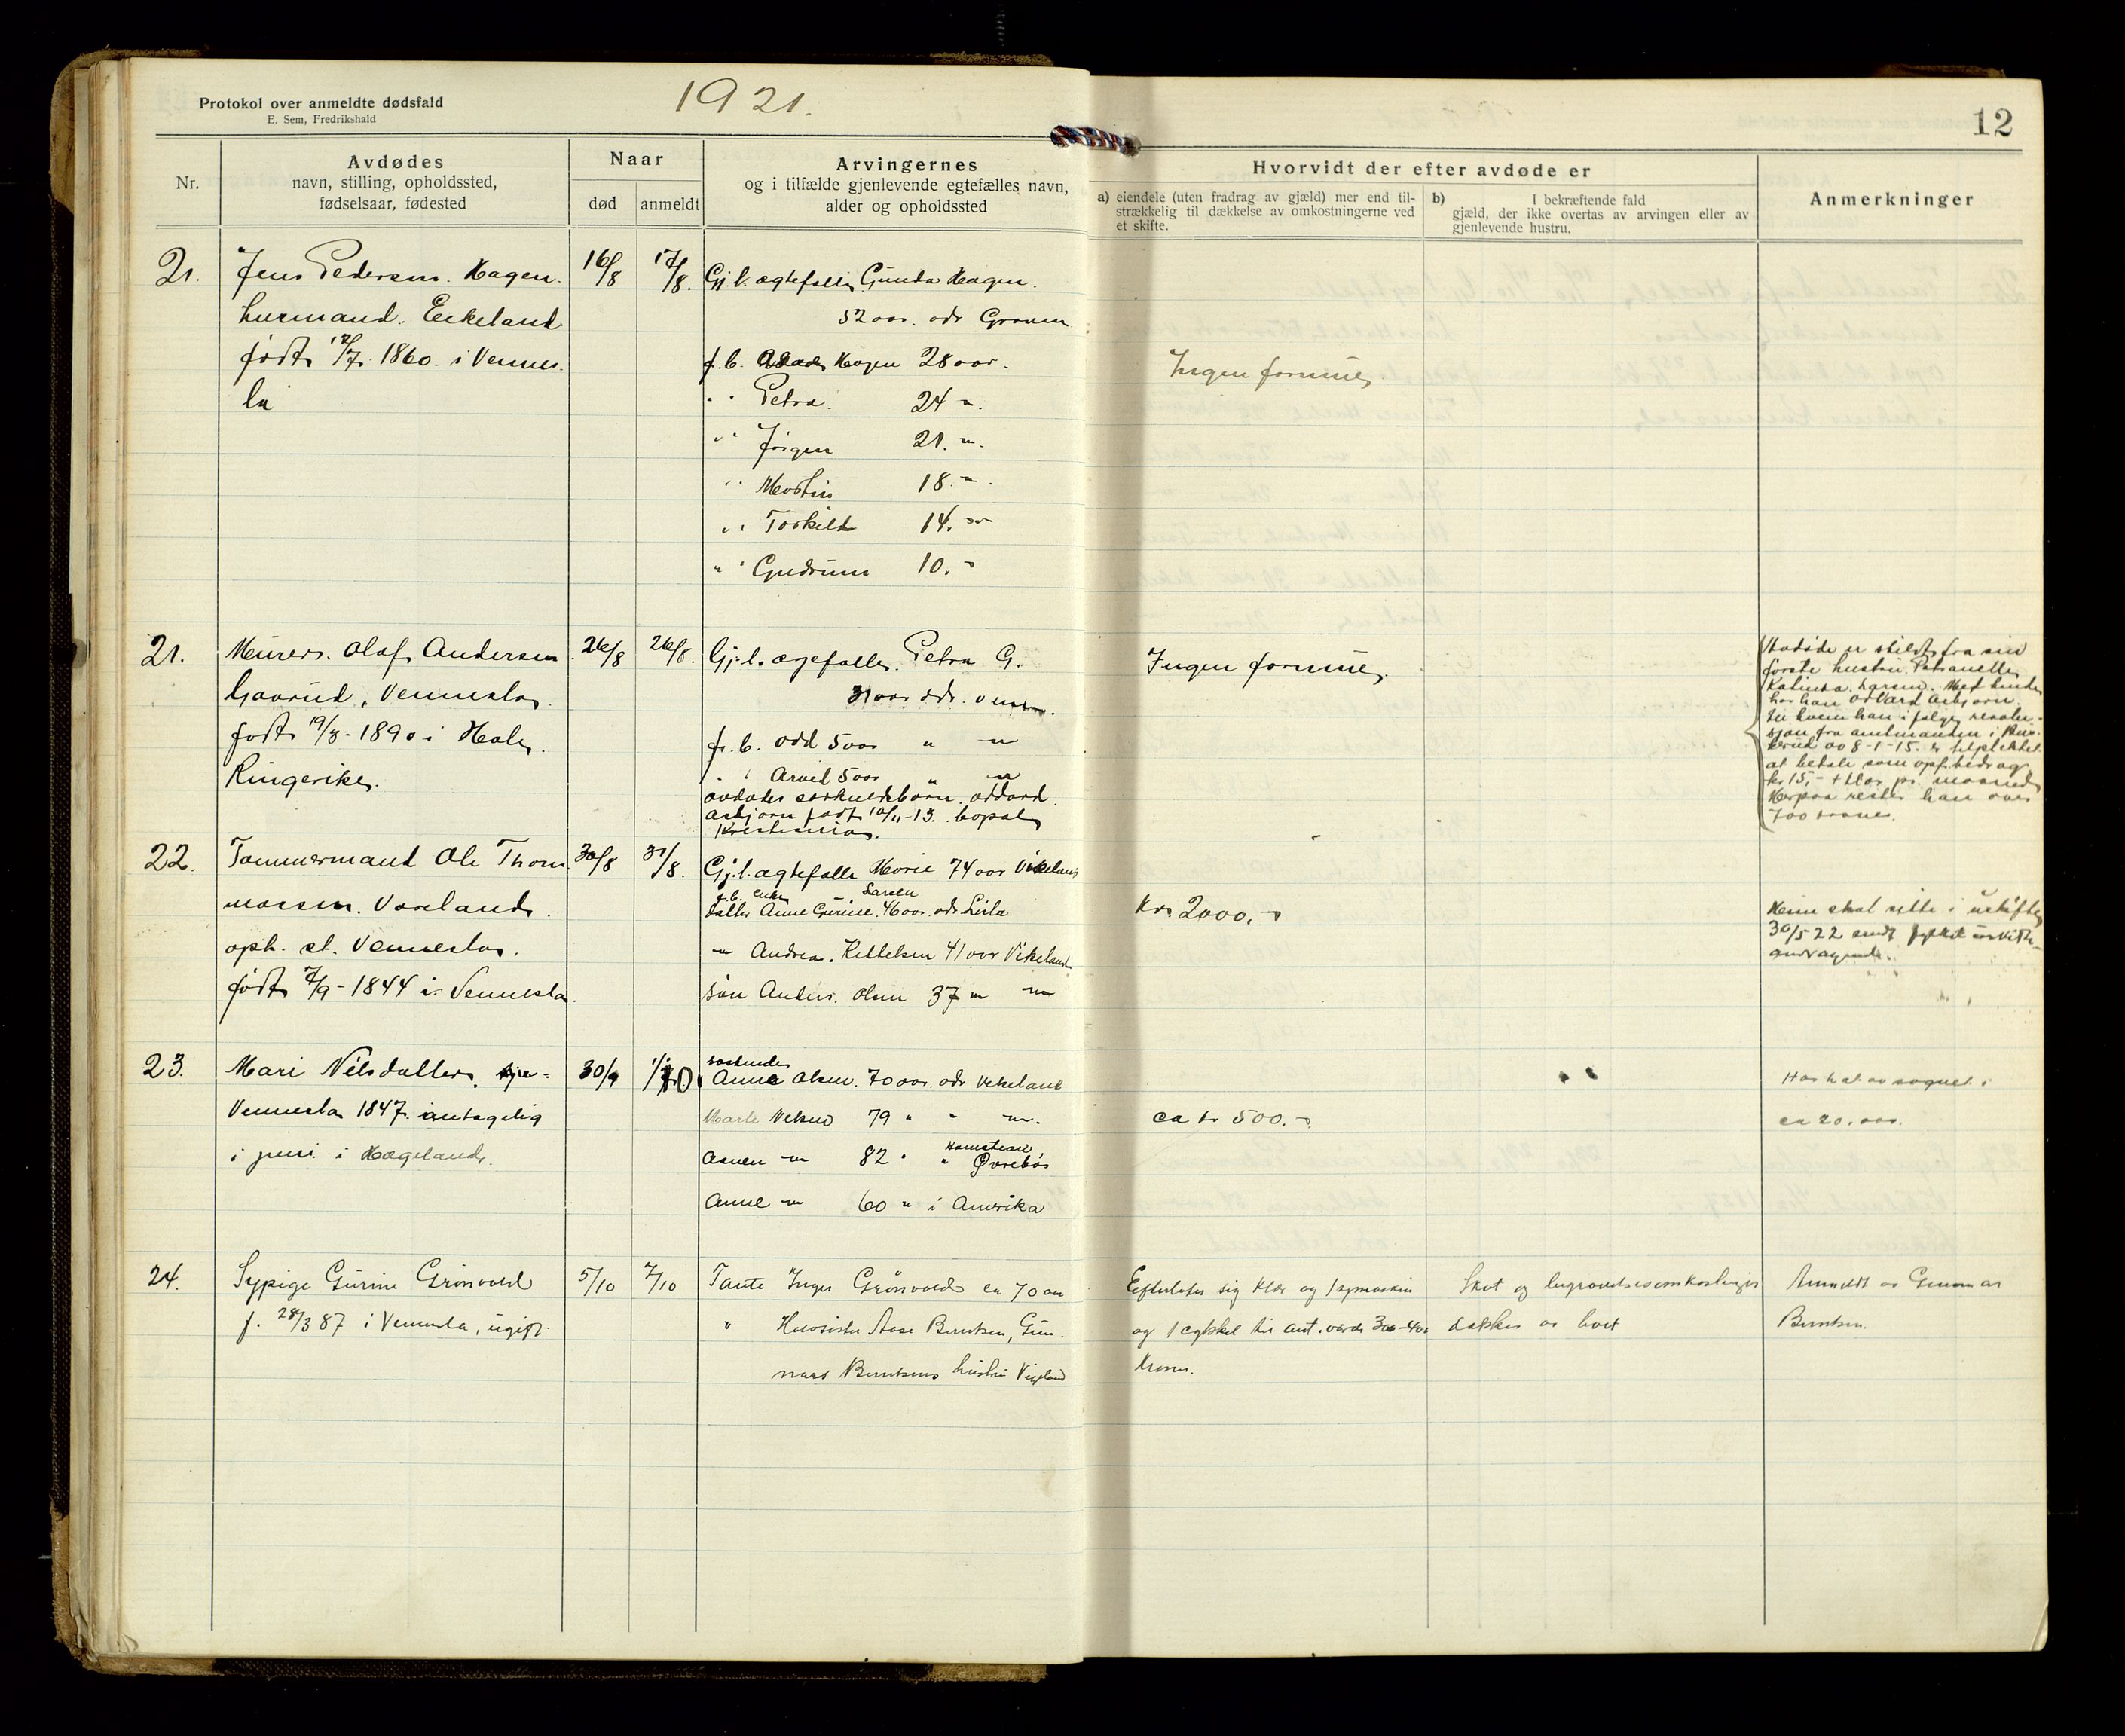 Protokol over anmeldte dødsfald
E. Sem, Fredrikshald
1921.
12
Nr.
Avdødes
navn, stilling, opholdssted,
fødselsaar, fødested
Naar
død
anmeldt
Arvingernes
og i tilfælde gjenlevende egtefælles navn,
alder og opholdssted
Hvorvidt der efter avdøde er
a) eiendele (uten fradrag av gjæld) mer end til-
strækkelig til dækkelse av omkostningerne ved
et skifte.
b) I bekræftende fald
gjæld, der ikke overtas av arvingen eller av
gjenlevende hustru.
Anmerkninger
21.
Jens Pedersen. Hagen.
husmand. Eikeland
født 12/7. 1860. i Vennes.
la
16/8
17/8.
Gj.l. ægtefælle Gunda Hagen.
52 aar. adr Graaen
f.b. Hagen 28 aar.
" " Petra. 24 "
" " Jörgen 21. "
" " 18. "
" " Torkild 14. "
" " Gudrun 10. "
Ingen formue
21.
Murer. Olaf Andersen
Gaarud, Vennesla
født 19/3 - 1890 i Hole,
Ringerike.
26/8
26/8.
Gj.l. ægefælle. Petra G.
31 aar adr. Venn.
f.b. Odd 5 aar " "
" " Arvid 5 aar " "
avdødes særkuldsbarn. Oddvard
Asbjørn født 10/11-13. bopæl
Kristiania.
Ingen formue.
Avdøde er skildt fra sin
første hustru
Katinka Larsen. Med hende
har han Odvard Asbjørn
til hvem han i følge resolu-
sjon fra amtmanden i Bus-
kerud av 8-1-15. er
at betale som opf.bidrag
kr 15,- pr. maaned
Herpaa rester han over
700 kroner.
22.
Tømmermand Ole Thom
massen. Vaaeland
oph. st. Vennesla.
født 7/9 - 1844 i Vennesla.
30/8
31/8.
Gj.l. ægtefælle Marie 74 aar Vikeland
f.b. enke Larsen
datter Anne Gurine. 46 aar. adr
" Andrea. Kittelsen 41 aar Vikeland
søn Anders. Olsen 37 " "
Kr. 2000.-
Kone skal sitte i uskifte
30/5 22 sendt
23.
Mari Nilsdatter,
Vennesla 1847. antagelig
i juni i Hægeland.
30/9
1/10
søskende
Anna Olsen. 70 aar. adr Vikeland
Marte Nilsen 79 " " "
Asnen " 82 " " Øvrebø
Anne " 60 " i Amerika
ca kr 500.-
Har hat av sognet i
ca 20. aar.
24.
Sypige Gurine Grönvold
f. 28/3 87 i Vennesla, ugift.
5/10
7/10
Tante Inger Grönvold ca 70 aar
" Halvsöster Aase Berntsen, Gun.
nars Berntsens hustru Vigeland
Efterlater sig klær og 1 symaskin
og 1 cykkel til ant. værdi 300-400
Kroner.
Skat og begravelsesomkostninger
dækkes av boet
Anmeldt av Gunnar
Berntsen.